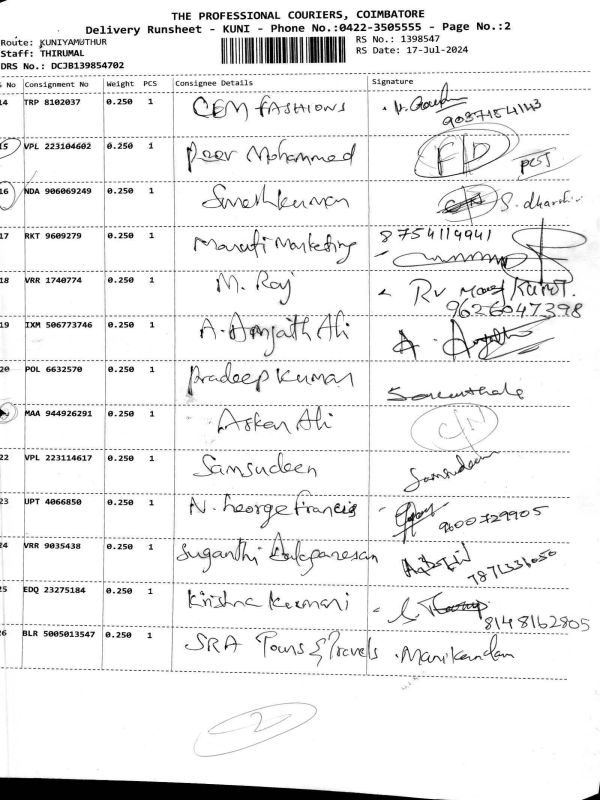 THE PROFESSIONAL COURIERS, COIMBATORE
Delivery Runsheet - KUNI - Phone No.:0422-3505555 - Page No.:2
Route: KUNIYAMUTHUR RS No.: 1398547
Staff: THIRUMAL RS Date: 17-Jul-2024
DRS No.: DCJB139854702
No Consignment No Weight PCS Consignee Details Signature
14 TRP 8102037 0.250 1 CEM FASHIONS
15 VPL 223104602 0.250 1 Peer Mohammed F/D
16 NDA 906069249 0.250 1 Sureshkumar S. dharshi
17 RKT 9609279 0.250 1 Maruti Marketing 8754114941
18 VRR 1740774 0.250 1 M. Raj 9626047398
19 IXM 506773746 0.250 1 A. Amjath Ali A.
20 POL 6632570 0.250 1 Pradeep Kumar
MAA 944926291 0.250 1 Asker Ali C/N
22 VPL 223114617 0.250 1 Samsudeen Samsudeen
23 UPT 4066850 0.250 1 N. George Francis 9600729905
24 VRR 9035438 0.250 1 Suganthi 7871331050
25 EDQ 23275184 0.250 1 Krishna Kumari 8148162805
26 BLR 5005013547 0.250 1 SRA Tours & Travels Manikandan
2